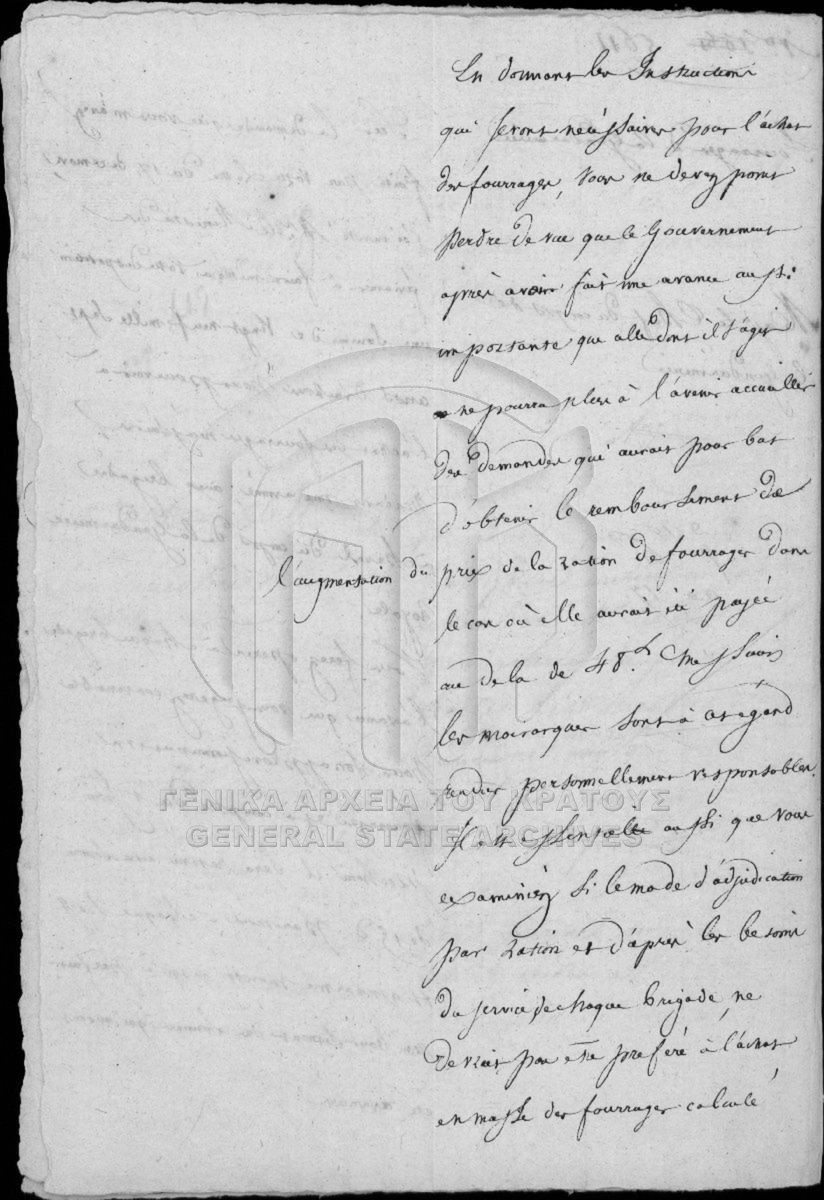 En donnant les Instructions
qui seront nécessaires pour l'achat
des fourrages, Vous ne devez point
perdre de vue que le Gouvernement
après avoir fait une avance aussi
importante que celle dont il s'agit
ne pourra plus à l'avenir accueillir
des demandes qui aurait pour but
d'obtenir le remboursement de
l'augmentation du prix de la ration de fourrages dans
le cas où elle aurait été payée
au delà de 48 Messieurs
les moirarques sont à cet egard
rendus personnellement responsables.
Il est essentielle aussi que vous
examiniéz si le mode d'adjudication
par ration et d'après les besoins
du service de chaque brigade, ne
devait pas être préféré à l'achat
en masse des fourrages calculé
ΓΕΝΙΚΑ ΑΡΧΕΙΑ ΤΟΥ ΚΡΑΤΟΥΣ
GENERAL STATE ARCHIVES